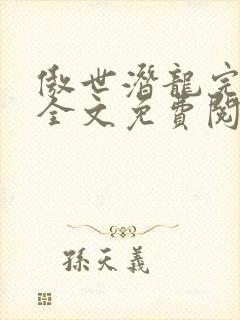 傲世潛龍完
全文免費閱
孫天義